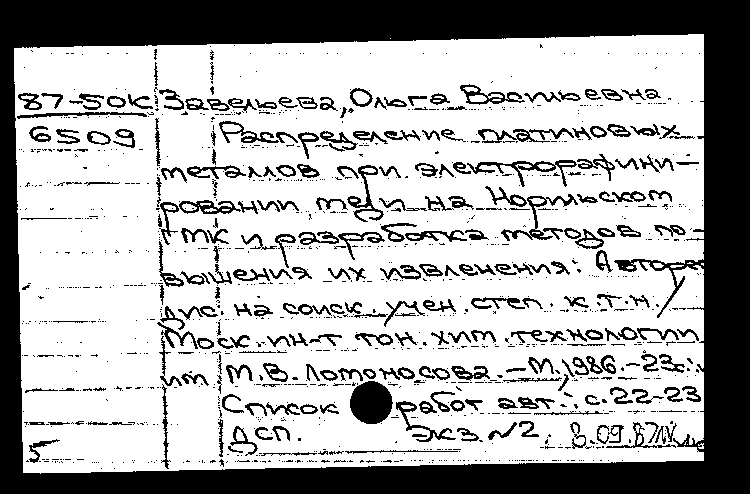 87-50К Завельева, Ольга Васильевна
6509 Распределение платиновых
металлов при электрорафини-
ровании меди на Норильском
ГМК и разработка методов по-
вышения их извлечения: Авторе
дис. на соиск. учен. степ. к.т.н. /
Моск. ин-т тон. хим. технологии
им М.В. Ломоносова. – М., 1986. – 23с.:
Список работ авт.: с. 22-23
ДСП. Экз. №2. 8.09.87
5